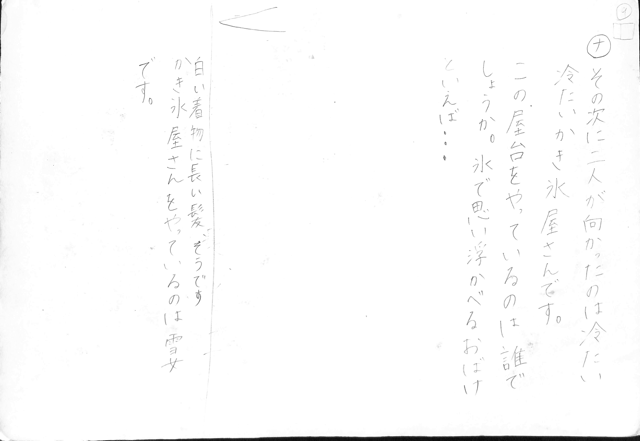 3
ナ
その次に二人が向かったのは冷たい
冷たいかき氷屋さんです。
この屋台をやっているのは誰で
しょうか。氷で思い浮かべるおばけ
といえば・・・
白い着物に長い髪、そうです
かき氷屋さんをやっているのは雪女
です。